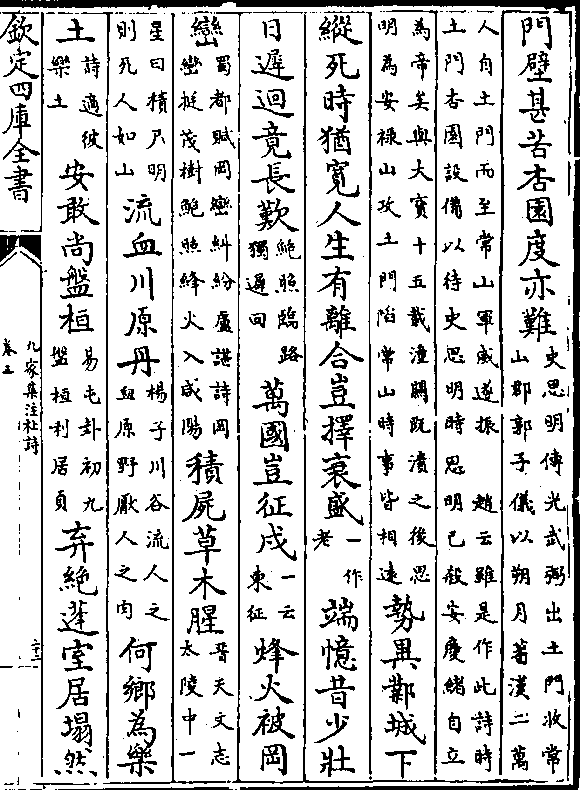 門壁甚苦杏園度亦難史思明傳光武弼出土門收常山郡郭子儀以朔月蕃漢二萬
人自土門而至常山軍威遂振趙云雖是作此詩時土門杏園設備以待史思明時思明已殺安慶緒自立
為帝矣與大寳十五載潼關既潰之後思明為安祿山攻土門陷常山時事皆相逺勢異鄴城下
縱死時猶寛人生有離合豈擇衰盛一作老端憶昔少壯
日遲迴竟長歎鮑照臨路獨遲回萬國豈征戍一云東征烽火被岡
巒蜀都賦岡巒糾紛盧諶詩岡巒挺茂樹鮑照絳火入咸陽積屍草木腥晉天文志太陵中一
星曰積尺明則死人如山流血川原丹楊子川谷流人之血原野厭人之肉何鄉為樂
土詩適彼樂土安敢尚盤桓易屯卦初九盤桓利居貞弃絶蓬室居塌然
欽定四庫全書
九家集注杜詩
卷三